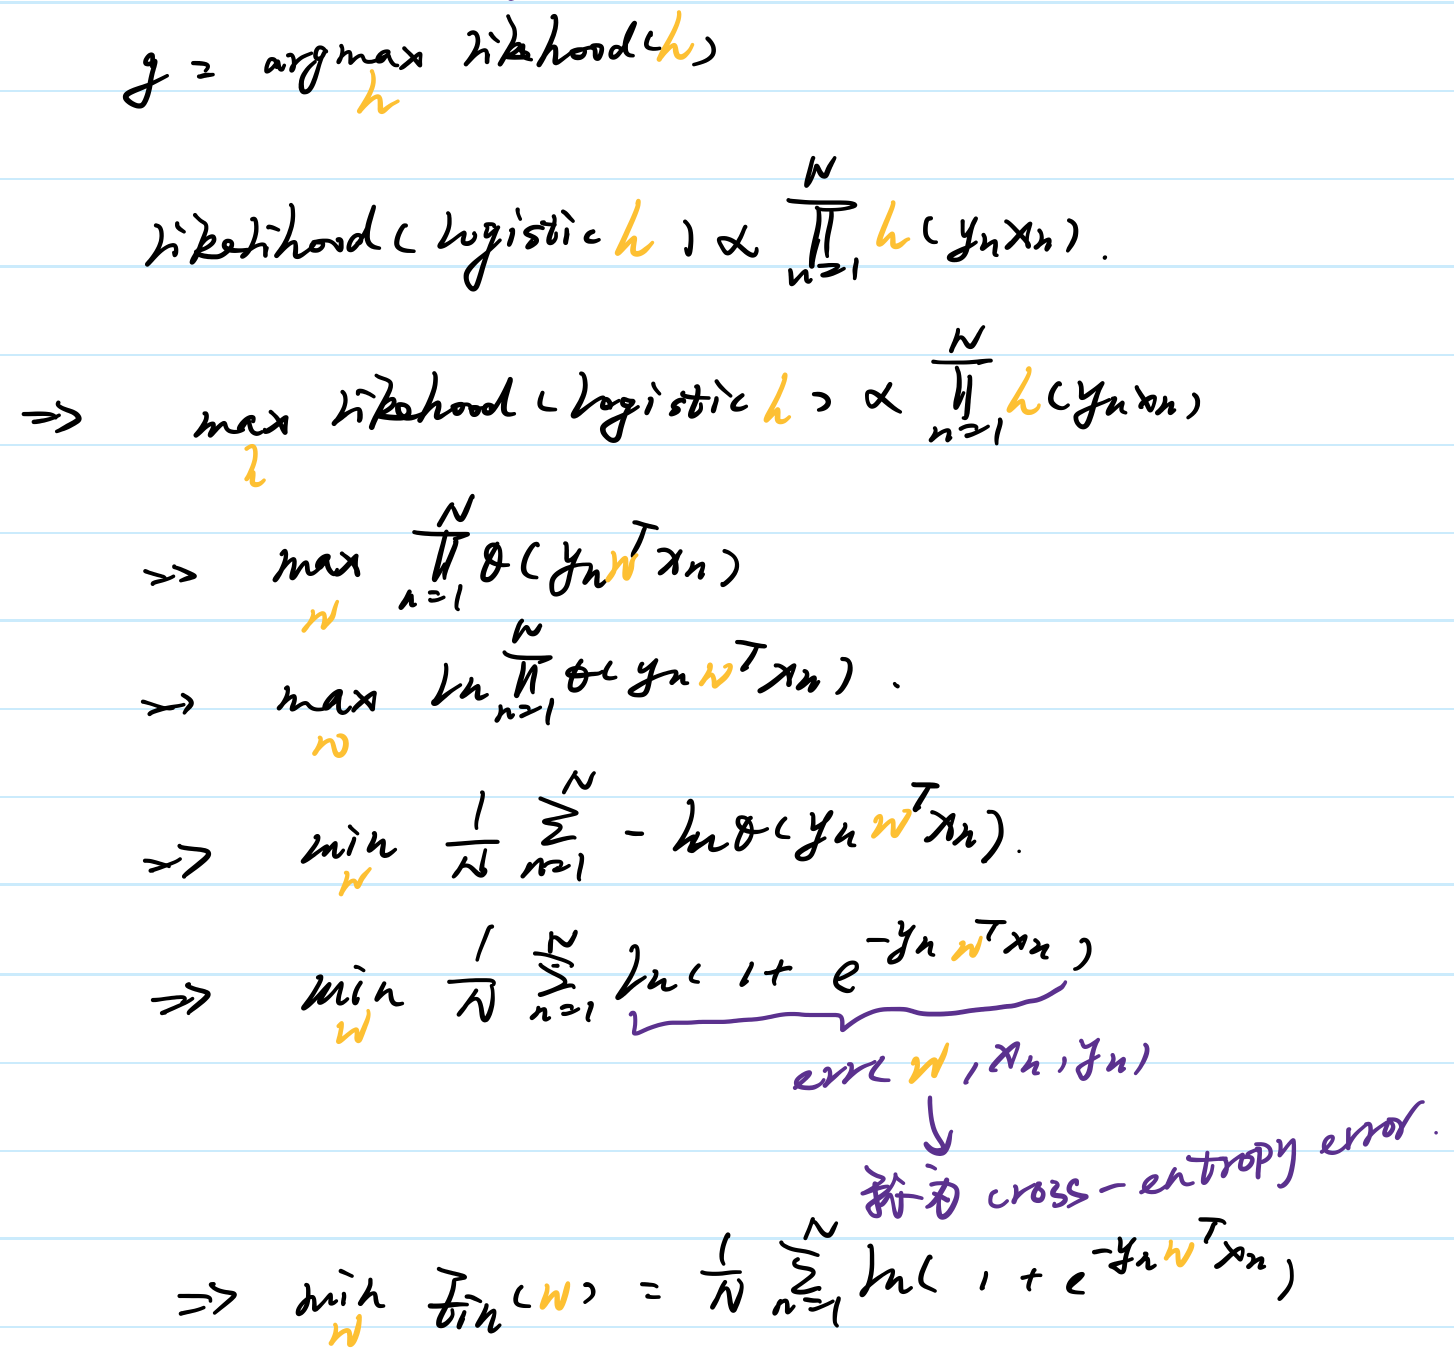 g = argmax_h likehood(h)
likelihood(logistic h) ∝ ∏_{n=1}^{N} h(y_n x_n).
⇒ max_h likehood(logistic h) ∝ ∏_{n=1}^{N} h(y_n x_n)
⇒ max_w ∏_{n=1}^{N} θ(y_n w^T x_n)
⇒ max_w ln ∏_{n=1}^{N} θ(y_n w^T x_n).
⇒ min_w 1/N ∑_{n=1}^{N} - ln θ(y_n w^T x_n).
⇒ min_w 1/N ∑_{n=1}^{N} ln(1 + e^{-y_n w^T x_n})
err(w, x_n, y_n)
↓
称为 cross-entropy error.
⇒ min_w E_in(w) = 1/N ∑_{n=1}^{N} ln(1 + e^{-y_n w^T x_n})